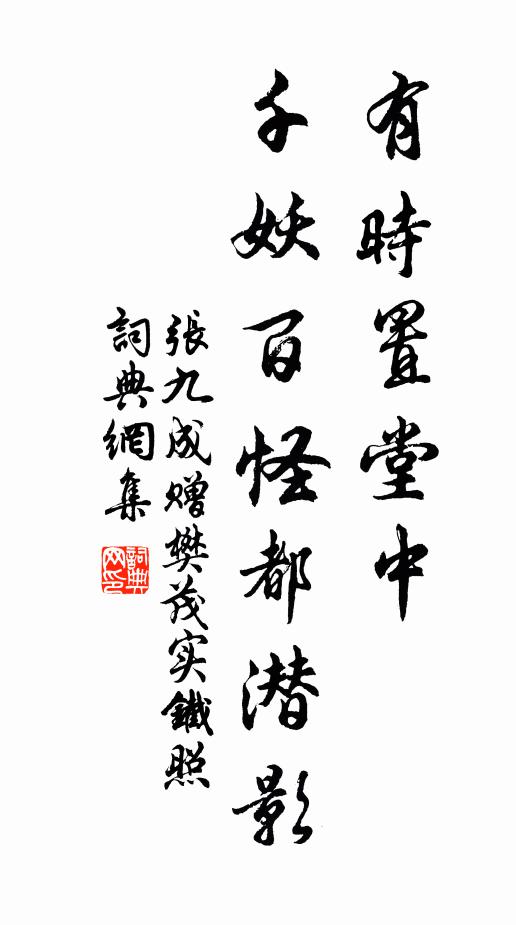 有時置堂中
千妖百怪都潜影
張九成贈樊茂实鐵照
詞典網集
詞典网印